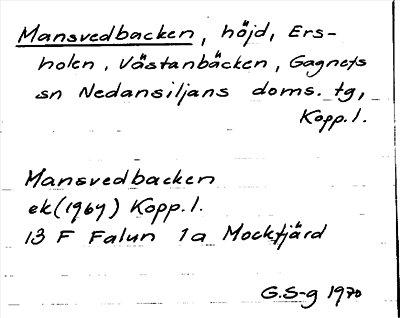 Mansvedbacken, höjd, Ers-
holen, Västanbäcken, Gagnefs
sn Nedansiljans doms. tg,
Kopp. l.
Mansvedbacken
ek (1969) Kopp. l.
13 F Falun 1a Mockfjärd
G.S-g 1970